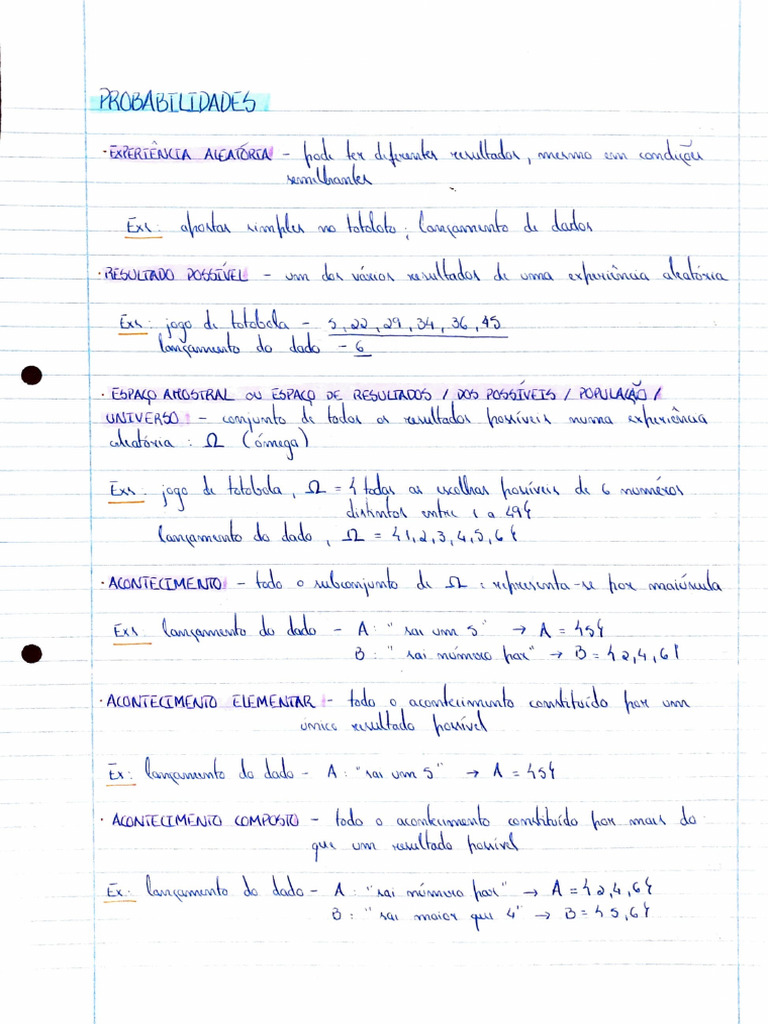 PROBABILIDADES
· EXPERIÊNCIA ALEATÓRIA - pode ter diferentes resultados, mesmo em condições
semilhantes
Exs: apostas simples no totoloto; lançamento de dados
· RESULTADO POSSÍVEL - um dos vários resultados de uma experiência aleatória
Exs: jogo de totobola - 5, 22, 29, 34, 36, 45
lançamento do dado - 6
· ESPAÇO AMOSTRAL OU ESPAÇO DE RESULTADOS / DOS POSSÍVEIS / POPULAÇÃO /
UNIVERSO - conjunto de todos os resultados possíveis numa experiência
aleatória: Ω (ómega)
Exs: jogo de totobola, Ω = { todas as escolhas possíveis de 6 números
distintos entre 1 a 49}
lançamento do dado, Ω = {1,2,3,4,5,6}
· ACONTECIMENTO - todo o subconjunto de Ω: representa-se por maiúscula
Exs: lançamento do dado - A: "sai um 5" → A = {5}
B: "sai número par" → B = {2,4,6}
· ACONTECIMENTO ELEMENTAR - todo o acontecimento constituído por um
único resultado possível
Ex: lançamento do dado - A: "sai um 5" → A = {5}
· ACONTECIMENTO COMPOSTO - todo o acontecimento constituído por mais do
que um resultado possível
Ex: lançamento do dado - A: "sai número par" → A = {2,4,6}
B: "sai maior que 4" → B = {5,6}